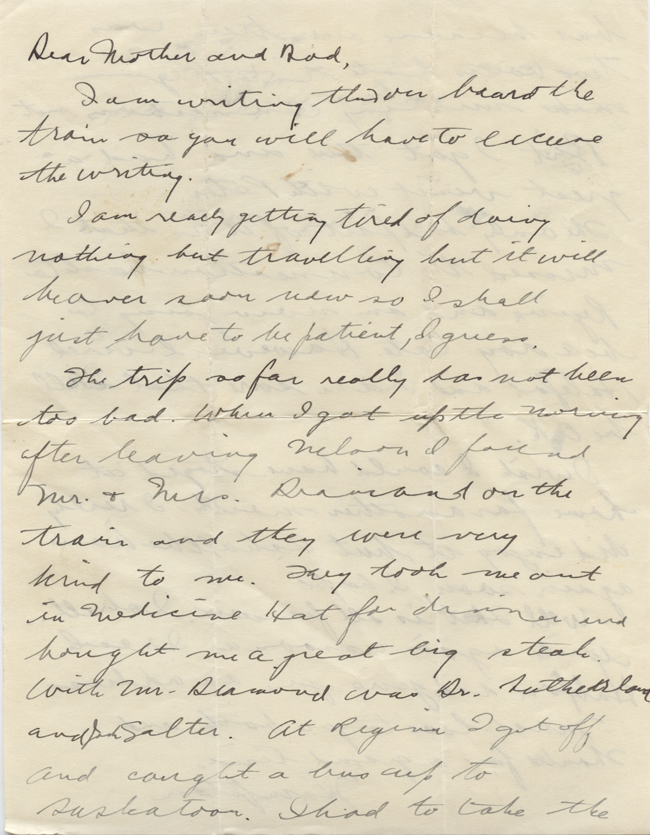 Dear Mother and Dad,
I am writing this on board the
train so you will have to excuse
the writing.
I am really getting tired of doing
nothing but travelling but it will
be over soon now so I shall
just have to be patient, I guess.
The trip so far really has not been
too bad. When I got up the morning
after leaving Nelson I found
Mr. & Mrs. Diamond on the
train and they were very
kind to me. They took me out
in Medicine Hat for dinner and
bought me a great big steak.
With Mr. Diamond was Dr. Sutherland
and Salter. At Regina I got off
and caught a bus up to
Saskatoon. I had to take the